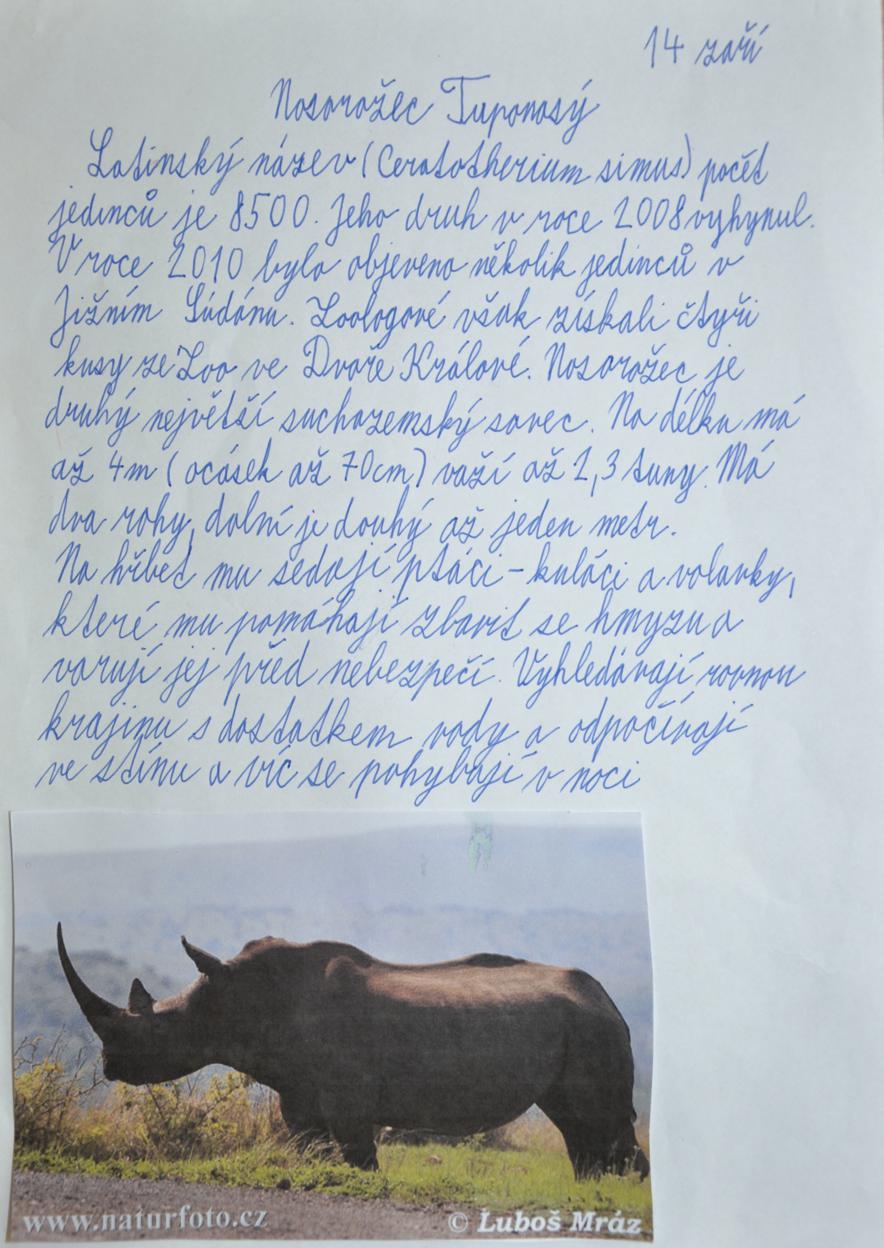 14 září
Nosorožec Tuponosý
Latinský název (Ceratotherium simus) počet
jedinců je 8500. Jeho druh v roce 2008 vyhynul.
V roce 2010 bylo objeveno několik jedinců v
Jižním Súdánu. Zoologové však získali čtyři
kusy ze Zoo ve Dvoře Králové. Nosorožec je
druhý největší suchozemský savec. Na délku má
až 4m (ocásek až 70cm) važí až 2,3 tuny. Má
dva rohy, dolní je douhý až jeden metr.
Na hřbet mu sedají ptáci - kuláci a volavky,
které mu pomáhají zbavit se hmyzu a
varují jej před nebezpečí. Vyhledávají rovnou
krajinu s dostatkem vody a odpočívají
ve stínu a víc se pohybují v noci
www.naturfoto.cz
© Ľuboš Mráz